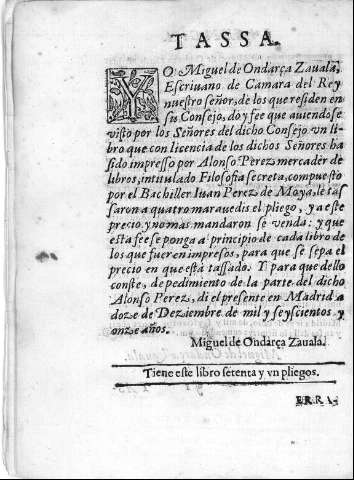 TASSA.
YO Miguel de Ondarça Zauala,
Escriuano de Camara del Rey
nuestro señor, de los que residen en
su Consejo, doy fee que auiendose
visto por los Señores del dicho Consejo vn li-
bro que con licencia de los dichos Señores ha
sido impresso por Alonso Perez mercader de
libros, intitulado Filosofia secreta, compuesto
por el Bachiller Iuan Perez de Moya, le tas-
saron a quatro marauedis el pliego, y a este
precio y no mas mandaron se venda: y que
esta fee se ponga a principio de cada libro de
los que fueren impresos, para que se sepa el
precio en que està tassado. Y para que dello
conste, de pedimiento de la parte del dicho
Alonso Perez, di el presente en Madrid a
doze de Deziembre de mil y seyscientos y
onze años.
Miguel de Ondarça Zauala.
Tiene este libro setenta y vn pliegos.
ERRA-